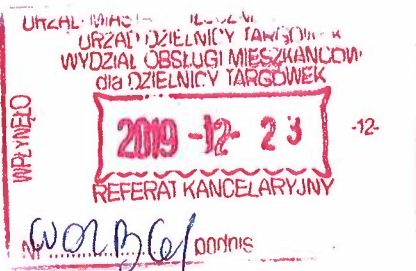 URZĄD DZIELNICY TARGÓWEK
WYDZIAŁ OBSŁUGI MIESZKAŃCÓW
dla DZIELNICY TARGÓWEK
WPŁYNĘŁO
2019 -12- 23
-12-
REFERAT KANCELARYJNY
podpis